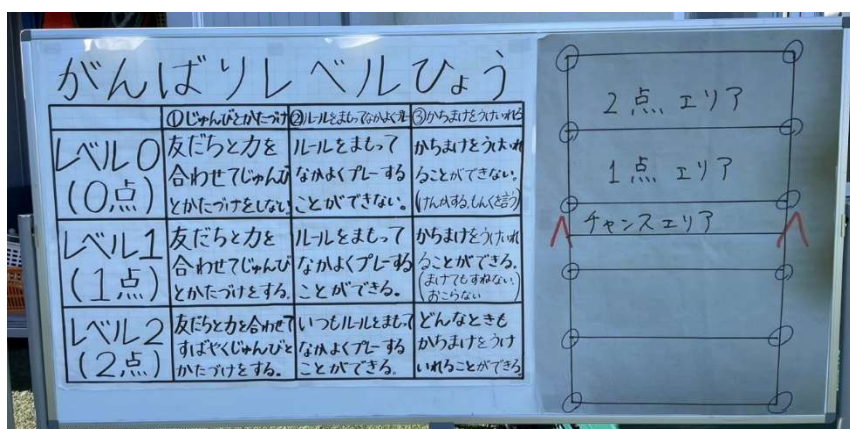 がんばりレベルひょう
①じゅんびとかたづけ
②ルールをまもってなかよくプレー
③かちまけをうけいれる
レベル0
(0点)
友だちと力を
合わせてじゅんび
とかたづけをしない。
ルールをまもって
なかよくプレーする
ことができない。
かちまけをうけいれ
ることができない。
(けんかする、もんくを言う)
レベル1
(1点)
友だちと力を
合わせてじゅんび
とかたづけをする。
ルールをまもって
なかよくプレーする
ことができる。
かちまけをうけいれ
ることができる。
(まけてもすねない、
おこらない)
レベル2
(2点)
友だちと力を合わせて
すばやくじゅんびと
かたづけをする。
いつもルールをまもって
なかよくプレーする
ことができる。
どんなときも
かちまけをうけ
いれることができる。
2点エリア
1点エリア
チャンスエリア